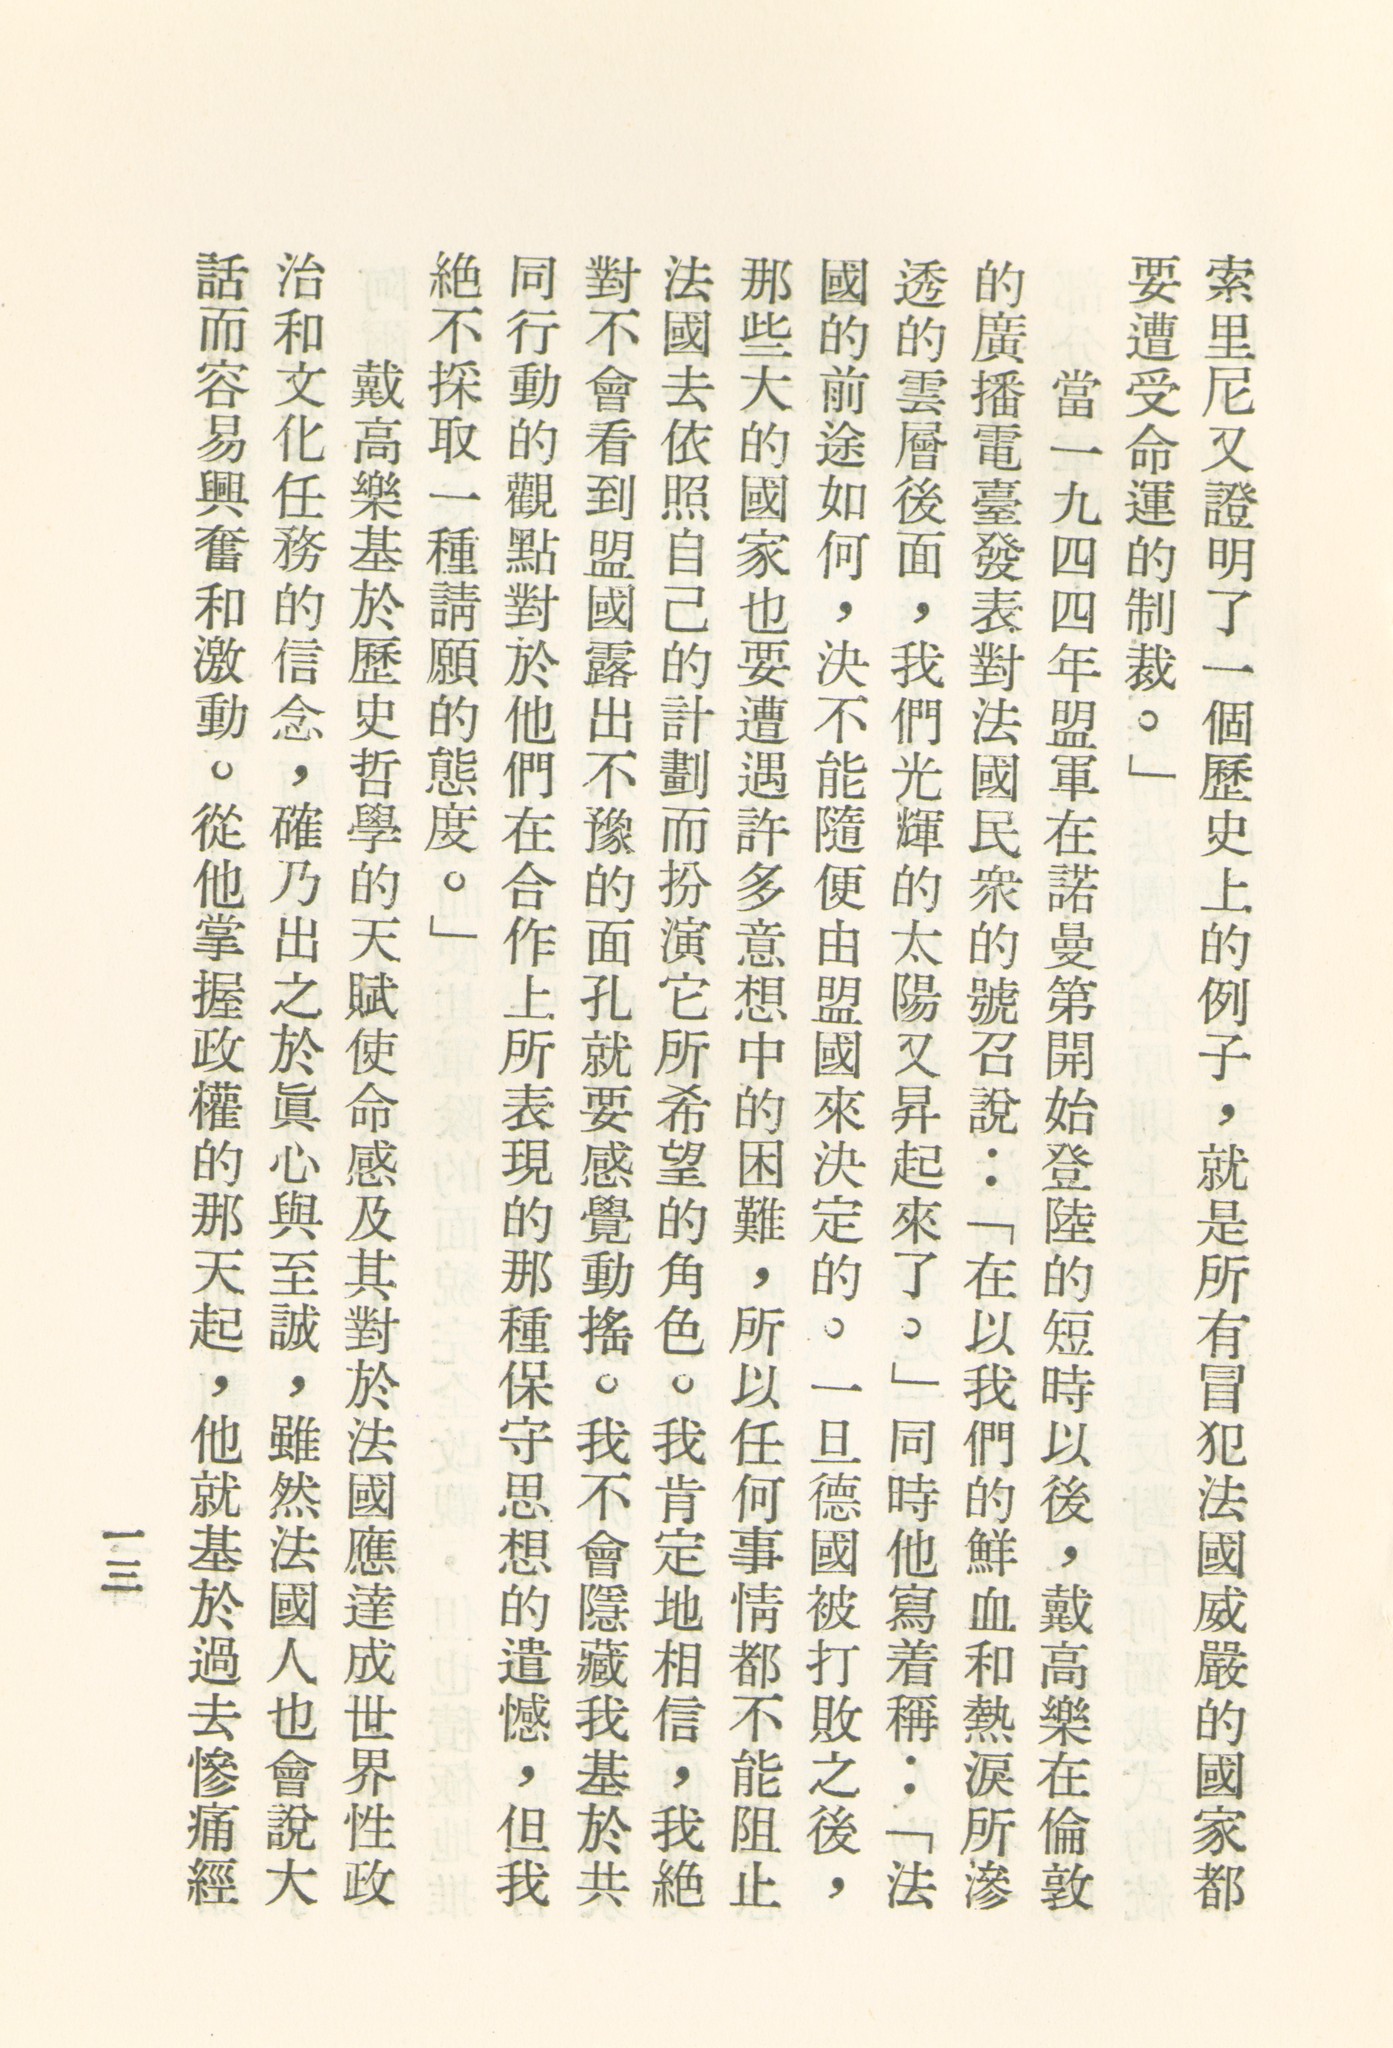 索里尼又證明了一個歷史上的例子，就是所有冒犯法國威嚴的國家都
要遭受命運的制裁。」
當一九四四年盟軍在諾曼第開始登陸的短時以後，戴高樂在倫敦
的廣播電臺發表對法國民衆的號召說：「在以我們的鮮血和熱淚所滲
透的雲層後面，我們光輝的太陽又昇起來了。」同時他寫着稱：「法
國的前途如何，決不能隨便由盟國來決定的。一旦德國被打敗之後，
那些大的國家也要遭遇許多意想中的困難，所以任何事情都不能阻止
法國去依照自己的計劃而扮演它所希望的角色。我肯定地相信，我絕
對不會看到盟國露出不豫的面孔就要感覺動搖。我不會隱藏我基於共
同行動的觀點對於他們在合作上所表現的那種保守思想的遺憾，但我
絕不採取一種請願的態度。」
戴高樂基於歷史哲學的天賦使命感及其對於法國應達成世界性政
治和文化任務的信念，確乃出之於眞心與至誠，雖然法國人也會說大
話而容易興奮和激動。從他掌握政權的那天起，他就基於過去慘痛經
一三